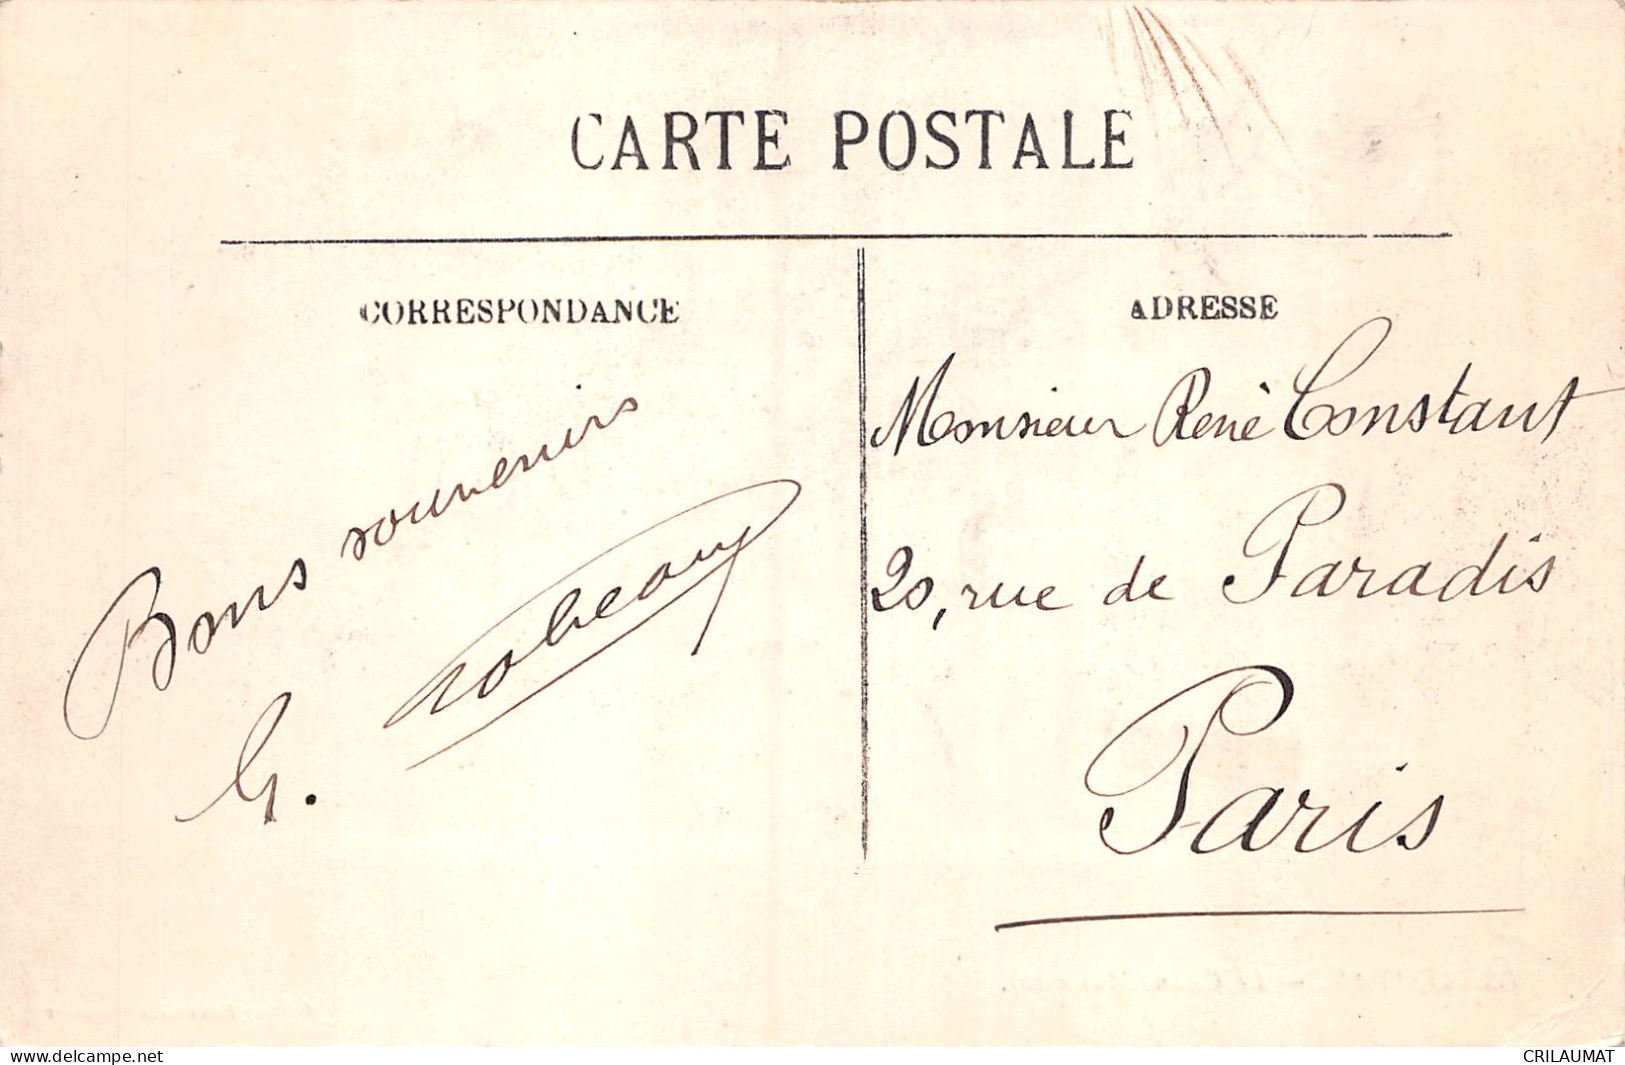 CARTE POSTALE
CORRESPONDANCE
Bons souvenirs
G.
ADRESSE
Monsieur René Constant
20, rue de Paradis
Paris
www.delcampe.net
CRILAUMAT